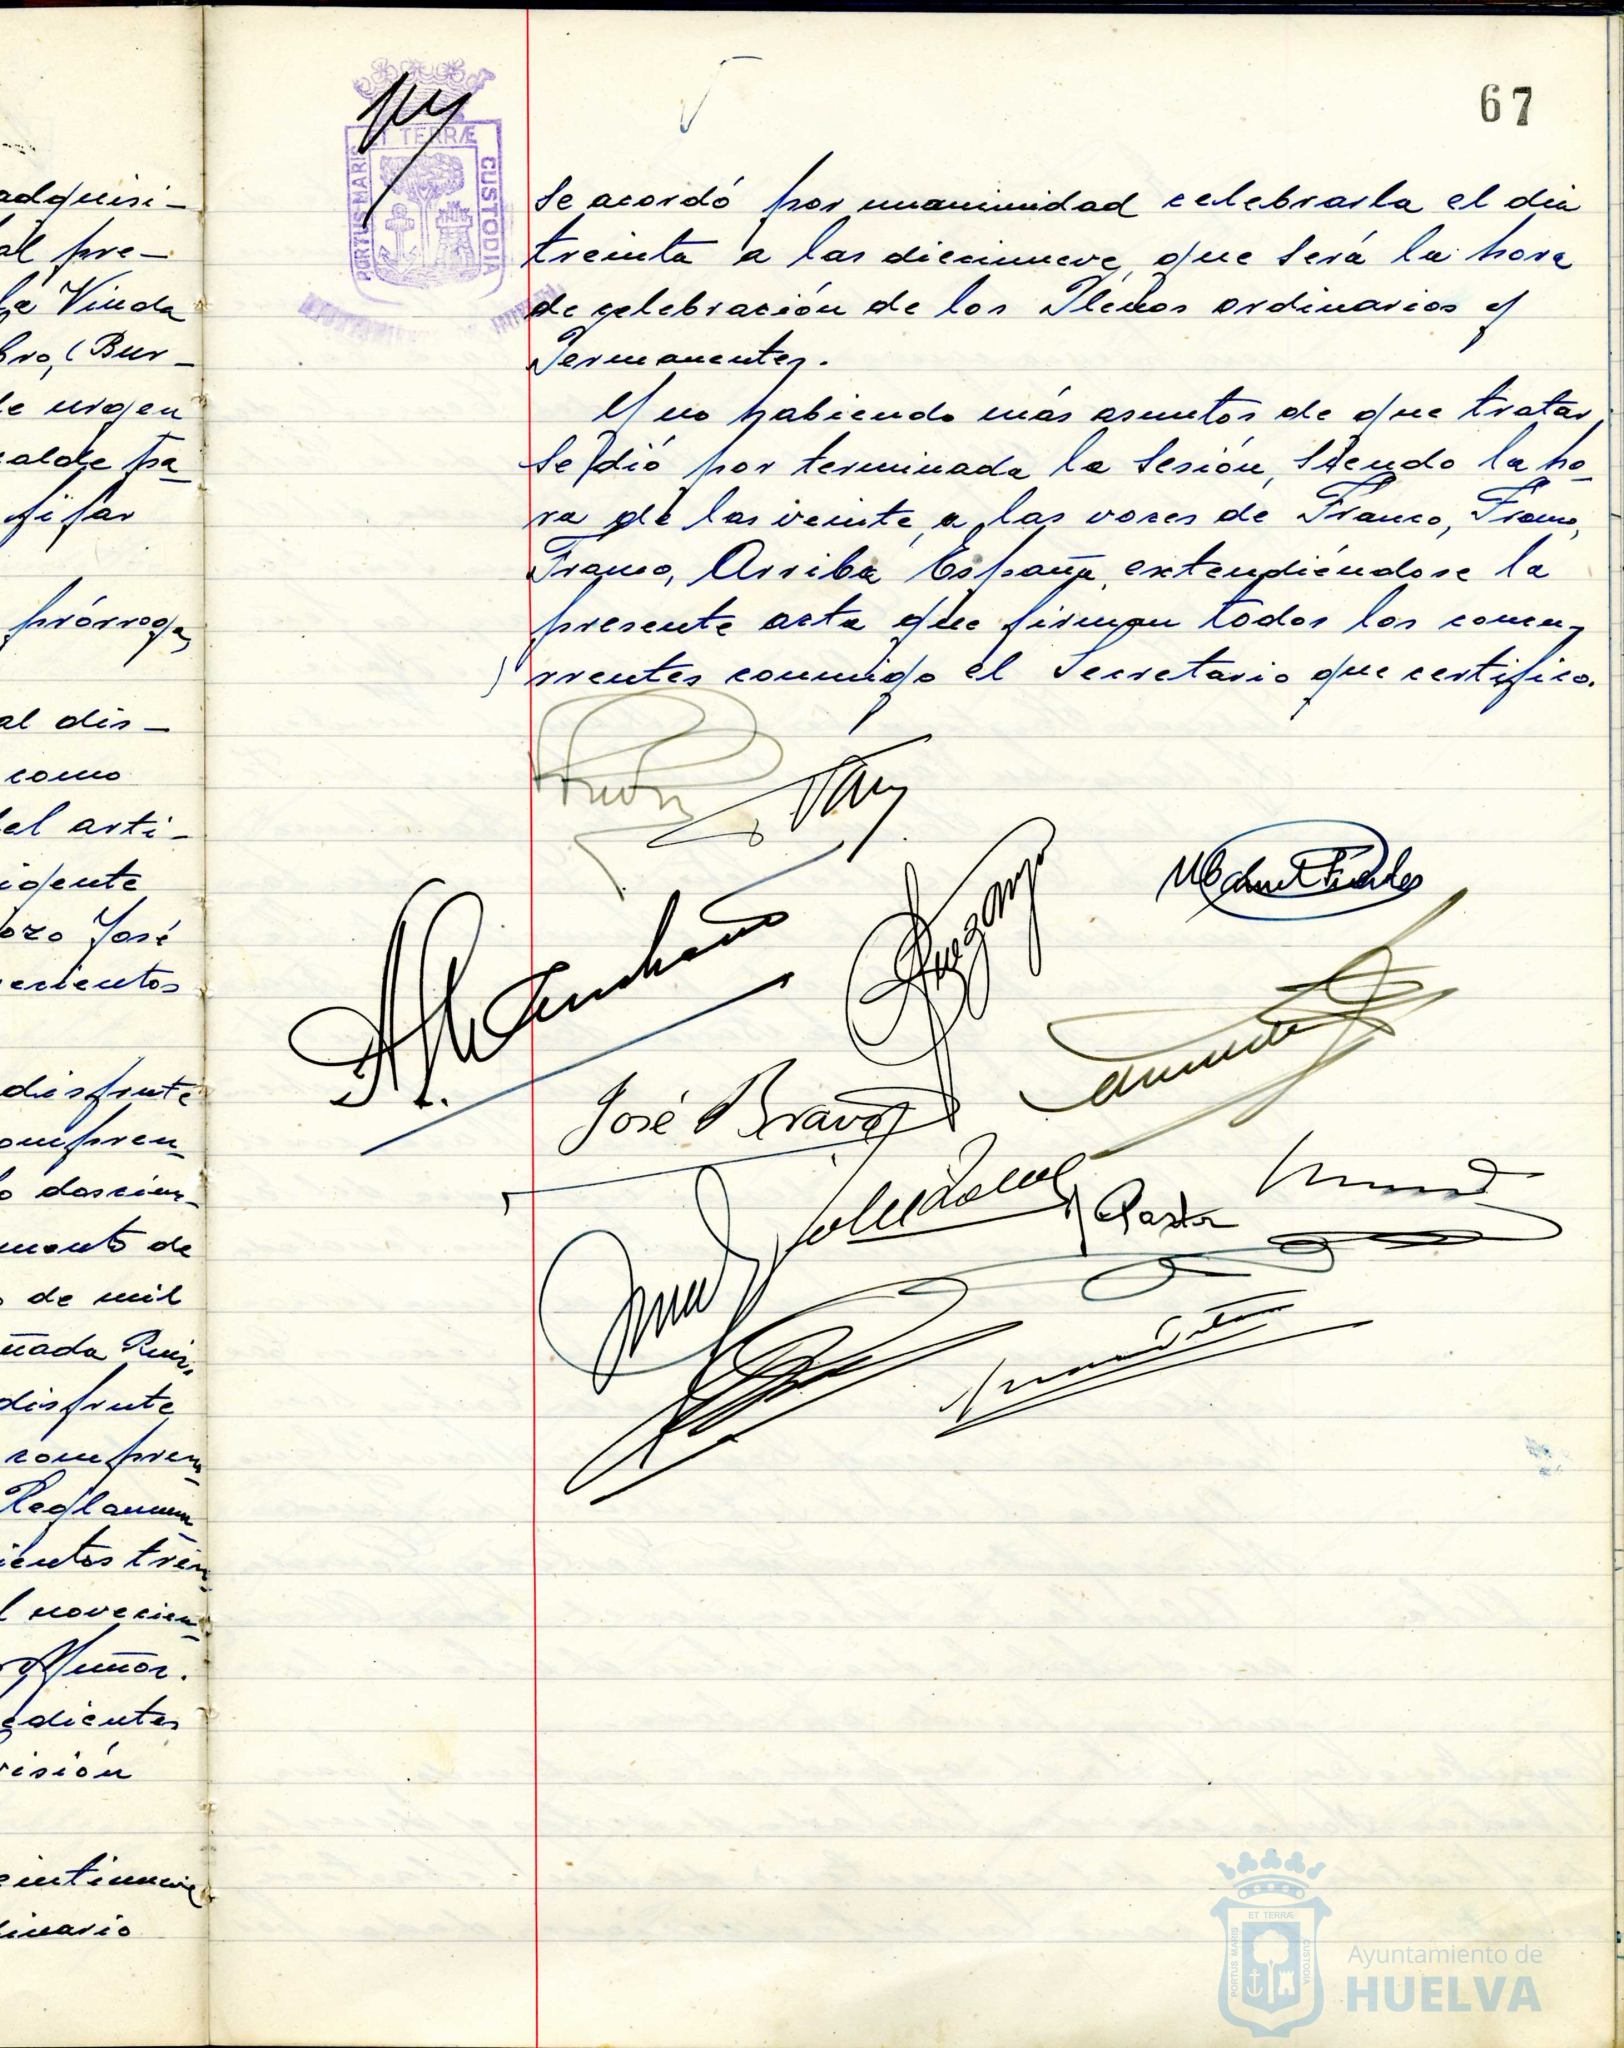 adquisi-
al pre-
la Viuda
bro, (Bur-
de urgen
calde pa-
fijar
prórroga
al dis-
como
del arti-
igente
ozo José
ecientos
disfrute
compren-
o doscien-
mento de
de mil
ñada Ruiz,
disfrute
compren-
Reglamen-
ientos trein-
l novecien-
Muñoz.
edientes
visión
eintinueve
dinario
67
PORTUS MARIS ET TERRÆ CUSTODIA
se acordó por unanimidad celebrarla el dia
treinta a las diecinueve, que será la hora
de celebración de los Plenos ordinarios y
Permanentes.
Y no habiendo más asuntos de que tratar,
se dió por terminada la sesión, siendo la ho-
ra de las veinte, a las voces de Franco, Franco,
Franco, Arriba España, extendiéndose la
presente acta que firman todos los concu-
rrentes conmigo el Secretario que certifico.
José Bravo
PORTUS MARIS ET TERRÆ CUSTODIA
Ayuntamiento de
HUELVA